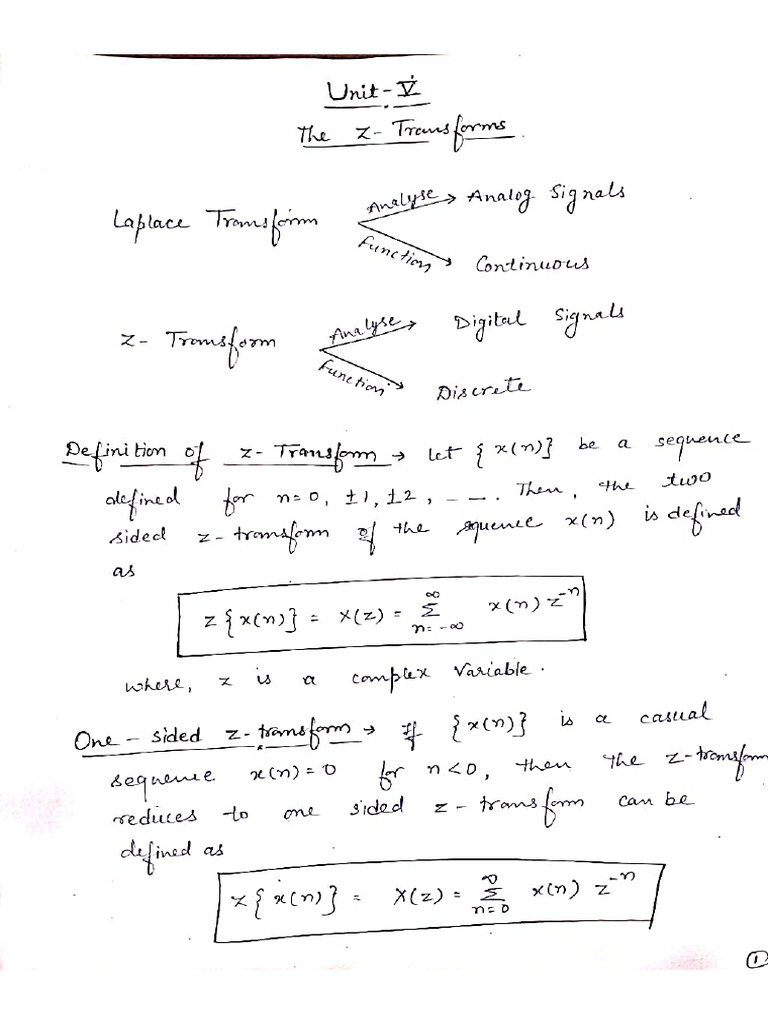 Unit-V
The Z-Transforms.
Laplace Transform Analyse → Analog Signals
Function → Continuous
Z- Transform Analyse → Digital Signals
Function → Discrete
Definition of Z-Transform → Let {x(n)} be a sequence
defined for n=0, ±1, ±2, - - -. Then, the two
sided z-transform of the squence x(n) is defined
as
z{x(n)} = X(z) = ∑_{n=-∞}^{∞} x(n) z^{-n}
where, z is a complex variable.
One-sided z-transform → If {x(n)} is a casual
sequence x(n)=0 for n<0, then the z-transform
reduces to one sided z-transform can be
defined as
z{x(n)} = X(z) = ∑_{n=0}^{∞} x(n) z^{-n}
1